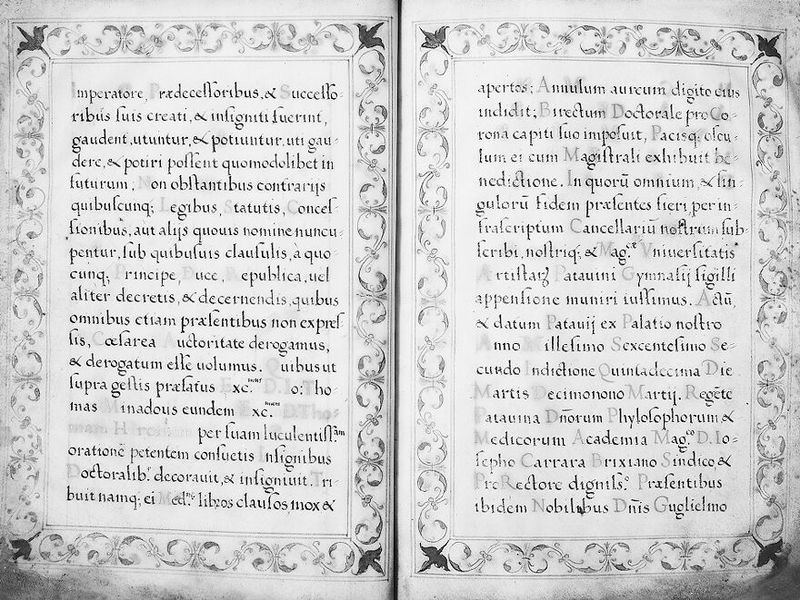 Imperatore, Prædecessoribus, & Successo-
ribus suis creati, & insigniti fuerint,
gaudent, utuntur, & potiuntur, uti gau-
dere, & potiri possent quomodolibet in
futurum; Non obstantibus contrarijs
quibuscunq; Legibus, Statutis, Conces-
sionibus, aut alijs quouis nomine nuncu-
pentur, sub quibusuis clausulis, à quo
cunq; Principe, Duce, Republica, uel
aliter decretis, & decernendis, quibus
omnibus etiam præsentibus non expres-
sis, Cæsarea Auctoritate derogamus,
& derogatum esse uolumus. Quibus ut
supra gestis præfatus Exc.mus D. Io: Tho-
mas Minadous eundem Exc.
per suam luculentiss.am
orationē petentem consuetis Insignibus
Doctoralib.s decorauit, & insigniuit. Tri-
buit namq; ei libros clausos, mox &
apertos; Annulum aureum digito eius
indidit; Birectum Doctorale pro Co-
rona capiti suo imposuit, Pacisq; oscu-
lum ei cum Magistrali exhibuit be-
nedictione. In quorū omnium, & sin-
gulorū Fidem præsentes fieri, per in-
frascriptum Cancellariū nostrum sub-
scribi, nostriq; & Mag.cæ Vniuersitatis
Artistarū Patauini Gymnasij sigilli
appensione muniri iussimus. Actū,
& datum Patauij ex Palatio nostro
Anno Millesimo Sexcentesimo Se-
cundo Indictione Quintadecima Die
Martis Decimonono Martij. Regēte
Patauina Dñorum Phylosophorum &
Medicorum Academia Mag.co D. Io-
sepho Carrara Brixiano Sindico, &
Pro Rectore digniss.o Præsentibus
ibidem Nobilibus Dñis Guglielmo